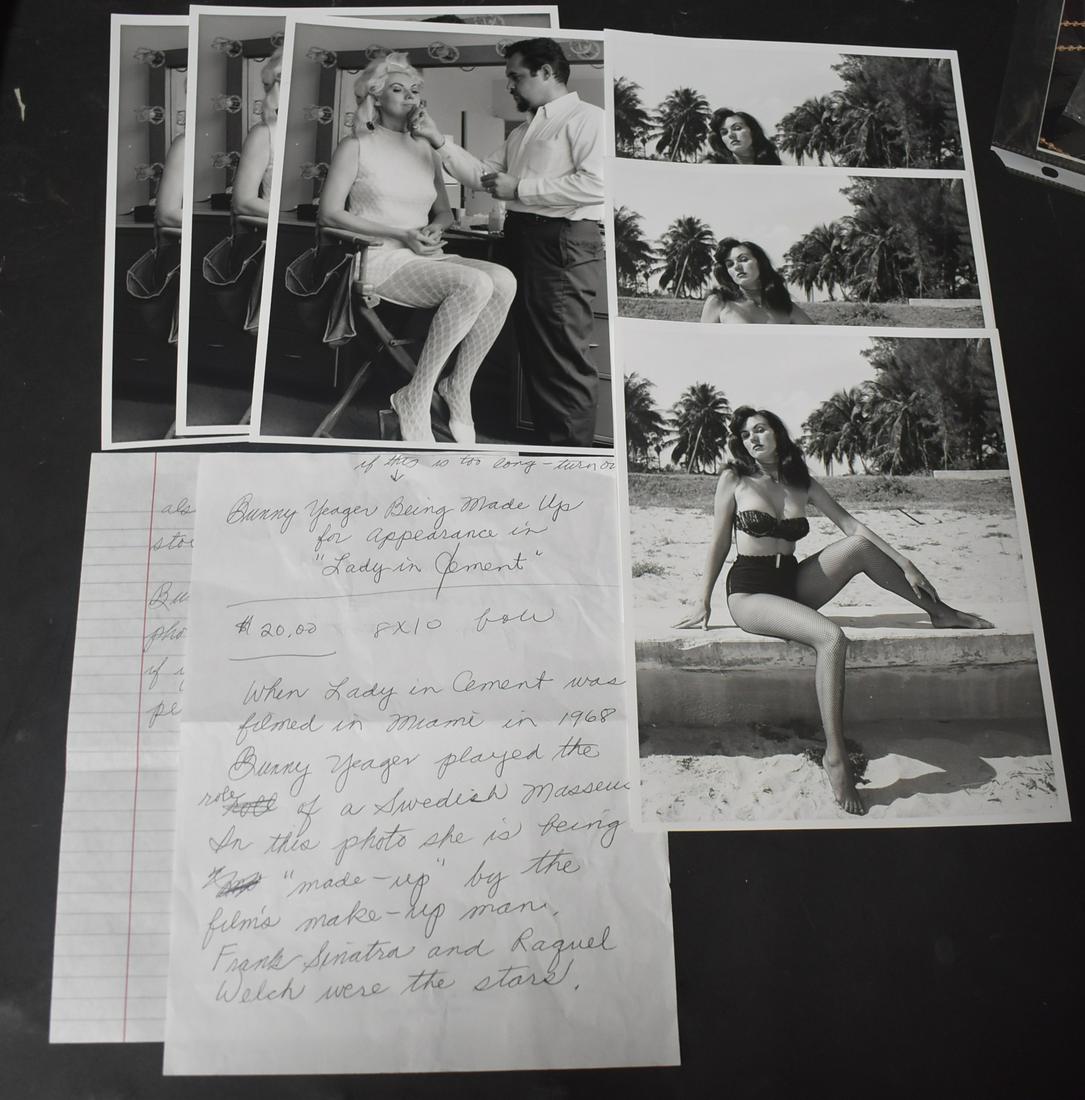 if this is too long - turn ov
Bunny Yeager Being Made Up
for Appearance in
"Lady in Cement"
$20.00 8X10 bow
When Lady in Cement was
filmed in Miami in 1968
Bunny Yeager played the
role of a Swedish Masseu
In this photo she is being
"made-up" by the
film's make-up man.
Frank Sinatra and Raquel
Welch were the stars!
als
stor
Bu
pho
if i
pe